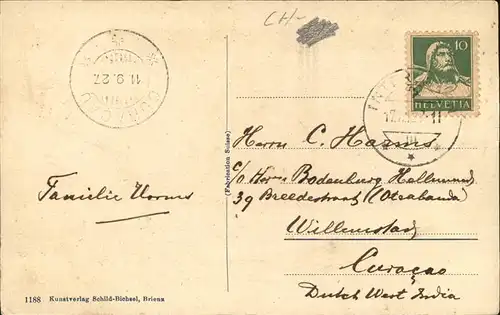 CH-
10
HELVETIA
CURAÇAO
11.9.27
(Fabrication Suisse)
Herrn C. Harms
c/o Herrn Bodenburg Hellmund
39 Breedestraat (Otrabanda)
Willemstad
Curaçao
Dutch West India
Familie Worms
1188 Kunstverlag Schild-Bichsel, Brienz